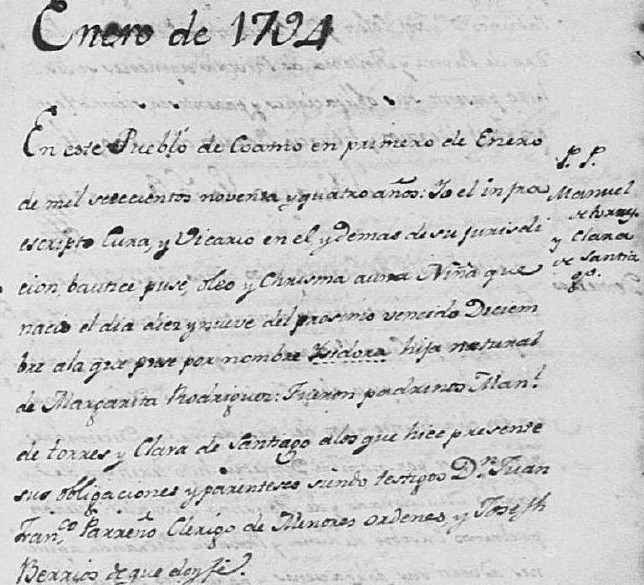 Enero de 1794
En este Pueblo de Coamo en primero de Enero
de mil setecientos noventa y quatro años: Yo el infra
escripto Cura, y Vicario en el y demas de su jurisdi
cion, bautice puse, oleo y Chrisma a una Niña que
nacio el dia diez y nueve del proximo vencido Deciem
bre a la que puse por nombre Isidora hija natural
de Margarita Rodriguez: Fueron padrinos Man.l
de torres y Clara de Santiago a los que hice presente
sus obligaciones y parentesco siendo testigos D.n Juan
Fran.co Parreño Clerigo de Menores ordenes, y Joseph
Berrios de que doy fe.
P. P.
Manuel
de torres
y Clara
de Santia
go.